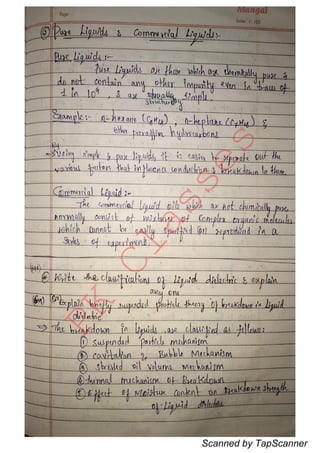 Mangal
Page
Date / 20
⑤ Pure Liquids & Commercial Liquids:-
Pure Liquids:-
Pure Liquids are those which are chemically pure &
do not contain any other impurity even in traces of
1 in 10⁹, & are structurally simple.
Example:- n-hexane (C₆H₁₄), n-heptane (C₇H₁₆) &
other paraffin hydrocarbons
By
→ Using simple & pure liquids, it is easier to seperate out the
various factors that influence conduction & breakdown in them.
Commercial Liquid:-
The commercial liquid oils which are not chemically pure
normally consist of mixtures of complex organic molecules
which cannot be easily specified (or) reproduced in a
series of experiments.
⑥ Write the classifications of Liquid dielectric & explain
any one
(or) Explain briefly suspended particle theory of breakdown in liquid
dieletric
⇒ The breakdown in liquids are classified as follows:
① suspended particle mechanism
② cavitation & Bubble Mechanism
③ stressed oil volume mechanism
④ thermal mechanism of Breakdown
⑤ Effect of Moisture content on Breakdown strength
of Liquid dieletric
HK Classes
Scanned by TapScanner